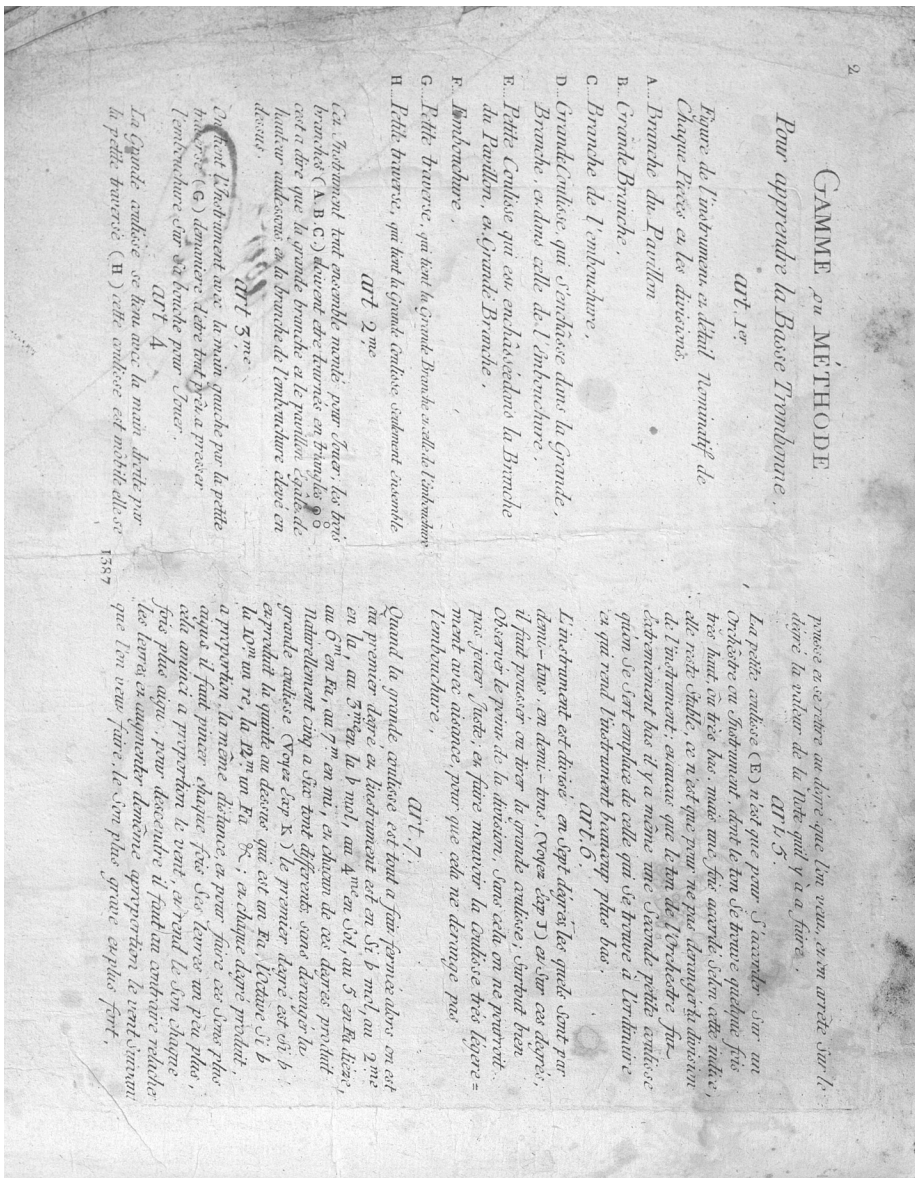 2
GAMME ou MÉTHODE
Pour apprendre la Basse Trombonne.
art. 1er
Figure de l'instrument en détail nominatif de
Chaque Pieces en les divisions.
A.. Branche du Pavillon
B.. Grande Branche.
C.. Branche de l'embouchure.
D.. Grande Coulisse, qui S'enchâsse dans la Grande,
Branche, en dans celle de l'imbouchure.
E.. Petite Coulisse qui est enchâscée dans la Branche
du Pavillon, en Grande Branche.
F.. Embouchure.
G.. Petite traverse, qui tient la Grande Branche en celle de l'imbouchure
H.. Petite traverse, qui tient la Grande Coulisse Seulement ensemble
art 2.me
Cet Instrument tout ensemble monté pour Jouer, les trois
branches (A.B.C.) doivent etre tournés en triangles
cest a dire que la grande branche et le pavillon Egale de
hauteur audessous en la branche de l'embouchure élevé en
dessus.
art 3.me
On tient l'Instrument avec la main gauche par la petite
traverse (G) demaniere d'etre tout près a presser
l'embouchure Sur Sa bouche pour Jouer.
art 4
La Grande coulisse se tient avec la main droite par
la petite traverse (H) cette coulisse est mobile elle se
1387
pousse en se rétire au degré que l'on veut, en on arrête Sur le
dégré la valeur de la Note quil y'a a faire.
art. 5.
La petite coulisse (E) n'est que pour S'accorder Sur un
Orchéstre ou Instrument dont le ton Se trouve quelque fois
tres haut, ou tres bas, mais une fois accordé Selon cette indice,
elle reste Stable, ce n'est que pour ne pas déranger la division
de l'instrument; en aucas que le ton de l'Orchestre fut
Extremement bas il y a même une Seconde petite coulisse
quon Se Sert emplace de celle qui Se trouve à l'ordinaire
en qui rend l'instrument beaucoup plus bas.
art. 6.
L'instrument est divisé en Sept degrés les quels Sont par
demi-tons, en demi-tons (Voyez Exp J) en Sur ces degrés,
il faut pousser ou tirer la grande coulisse, Surtout bien
Observer le point de la division, Sans cela on ne pourroit
pas jouer Juste; en faire mouvoir la Coulisse trés légere=
ment avec aisance, pour que cela ne derange pas
l'embouchure.
art. 7.
Quand la grande coulisse est tout a fait fermée alors on est
au premier degré, en l'instrument est en Si, b mol, au 2.me
en la, au 3.me en la b mol, au 4.me en Sol, au 5 en Fa dieze,
au 6.m en Fa, au 7.m en mi, en chacun de ces degres produit
naturellement cinq a Six tont différents sans déranger la
grande coulisse (Voyez Exp K) le premier degré est Si b
en produit la quinte au dessus qui est un Fa, l'octave Si b
la 10.m un re, la 12.m un Fa &c; en chaque degré produit,
a proportion la même distance, en pour faire ces Sons plus
aigus il faut pincer chaque fois Ses levres un peu plus,
cela aminci a proportion le vent en rend le Son chaque
fois plus aigu, pour descendre il faut au contraire relacher
les levres en augmenter demême apropportion le vent Suivant
que l'on veut faire, le Son plus grave en plus fort,